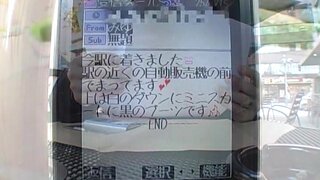 From
Sub 無題
今駅に着きました
駅の近くの自動販売機の前
でまってます
上は白のダウンにミニスカ
ートに黒のブーツです
END
選択
機能